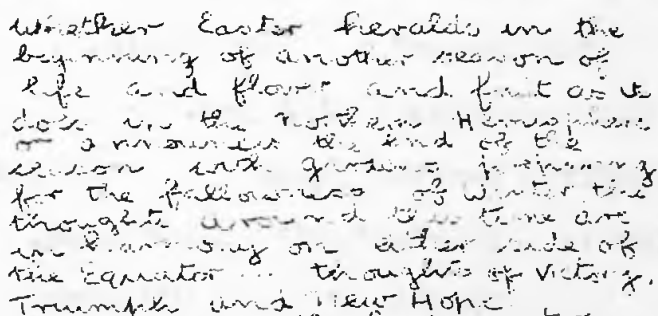 whether Easter heralds in the
beginning of another season of
life and flower and fruit as it
does in the northern Hemisphere
or announces the end of the
season with gardens preparing
for the fallowness of winter the
thoughts around this time are
in harmony on either side of
the Equator thoughts of victory,
Triumph and New Hope